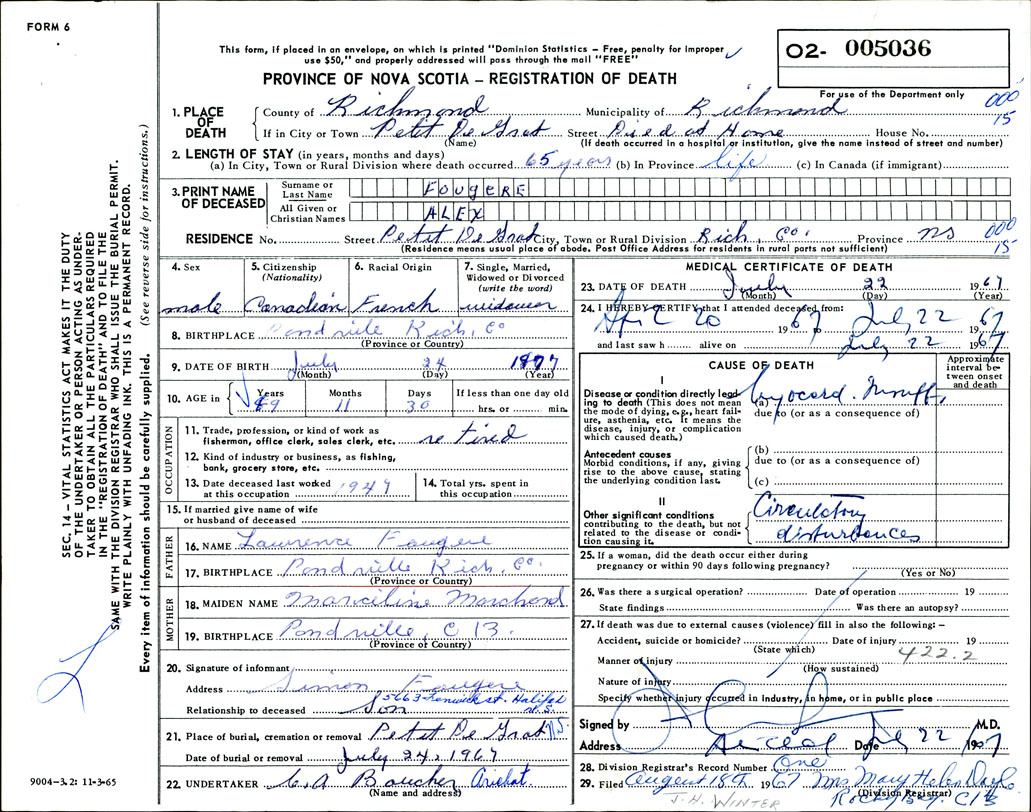 FORM 6
This form, if placed in an envelope, on which is printed "Dominion Statistics – Free, penalty for improper
use $50," and properly addressed will pass through the mail "FREE"
PROVINCE OF NOVA SCOTIA – REGISTRATION OF DEATH
02- 005036
For use of the Department only
000
15
1. PLACE OF DEATH
County of Richmond Municipality of Richmond
If in City or Town Petit De Grat Street Died at Home House No.
(Name) (If death occurred in a hospital or institution, give the name instead of street and number)
2. LENGTH OF STAY (in years, months and days)
(a) In City, Town or Rural Division where death occurred 65 years (b) In Province life (c) In Canada (if immigrant)
3. PRINT NAME OF DECEASED
Surname or Last Name FOUGERE
All Given or Christian Names ALEX
RESIDENCE No. Street Petit De Grat City, Town or Rural Division Rich, Co. Province NS
000
15
(Residence means usual place of abode. Post Office Address for residents in rural parts not sufficient)
4. Sex male
5. Citizenship (Nationality) Canadian
6. Racial Origin French
7. Single, Married, Widowed or Divorced (write the word) widower
8. BIRTHPLACE Pondville Rich, Co
(Province or Country)
9. DATE OF BIRTH July 24 1877
(Month) (Day) (Year)
10. AGE in Years 89 Months 11 Days 30 If less than one day old hrs. or min.
OCCUPATION
11. Trade, profession, or kind of work as fisherman, office clerk, sales clerk, etc. retired
12. Kind of industry or business, as fishing, bank, grocery store, etc.
13. Date deceased last worked at this occupation 1947
14. Total yrs. spent in this occupation
15. If married give name of wife or husband of deceased
FATHER
16. NAME Lawrence Fougere
17. BIRTHPLACE Pondville Rich, Co.
(Province or Country)
MOTHER
18. MAIDEN NAME Marciline Marchand
19. BIRTHPLACE Pondville, C B.
(Province or Country)
20. Signature of informant Simon Fougere
Address 5663 Fenwick st. Halifax N.S.
Relationship to deceased Son
21. Place of burial, cremation or removal Petit De Grat N.S.
Date of burial or removal July 24, 1967
22. UNDERTAKER C. A Boucher Arichat
(Name and address)
MEDICAL CERTIFICATE OF DEATH
23. DATE OF DEATH July 22 1967
(Month) (Day) (Year)
24. I HEREBY CERTIFY that I attended deceased from:
Apr 20 1967 July 22 1967
and last saw h alive on July 22 1967
CAUSE OF DEATH
Approximate interval between onset and death
I
Disease or condition directly leading to death (This does not mean the mode of dying, e.g., heart failure, asthenia, etc. It means the disease, injury, or complication which caused death.)
(a) Myocard. Insuff.
due to (or as a consequence of)
Antecedent causes
Morbid conditions, if any, giving rise to the above cause, stating the underlying condition last.
(b)
due to (or as a consequence of)
(c)
II
Other significant conditions contributing to the death, but not related to the disease or condition causing it.
Circulatory
disturbances
25. If a woman, did the death occur either during pregnancy or within 90 days following pregnancy?
(Yes or No)
26. Was there a surgical operation? Date of operation 19
State findings Was there an autopsy?
27. If death was due to external causes (violence) fill in also the following: –
Accident, suicide or homicide? Date of injury 19
(State which)
422.2
Manner of injury
(How sustained)
Nature of injury
Specify whether injury occurred in industry, in home, or in public place
Signed by M.D.
Address Arichat Date July 22 1967
28. Division Registrar's Record Number One
29. Filed August 18th 1967 Mrs Mary Helen
(Division Registrar)
J. H. WINTER
SEC. 14 – VITAL STATISTICS ACT MAKES IT THE DUTY
OF THE UNDERTAKER OR PERSON ACTING AS UNDER-
TAKER TO OBTAIN ALL THE PARTICULARS REQUIRED
IN THE "REGISTRATION OF DEATH" AND TO FILE THE
SAME WITH THE DIVISION REGISTRAR WHO SHALL ISSUE THE BURIAL PERMIT.
WRITE PLAINLY WITH UNFADING INK. THIS IS A PERMANENT RECORD.
Every item of information should be carefully supplied. (See reverse side for instructions.)
9004–3.2: 11-3-65